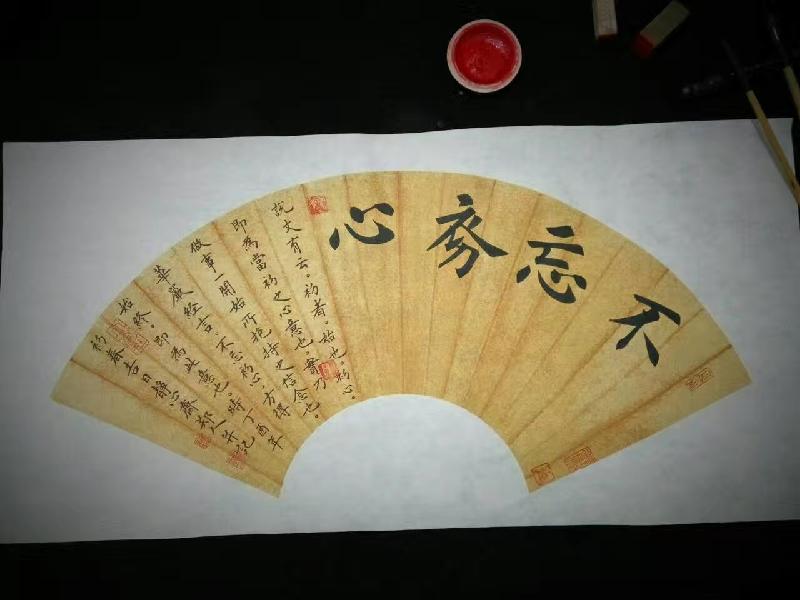 不忘初心
說文有云。初者。始也。初心。
即為當初之心意也。乃
做事一開始所抱持之信念也。
華嚴經言。不忘初心。方得
始終。即為此意也。時丁酉年
初春吉日靜心齋